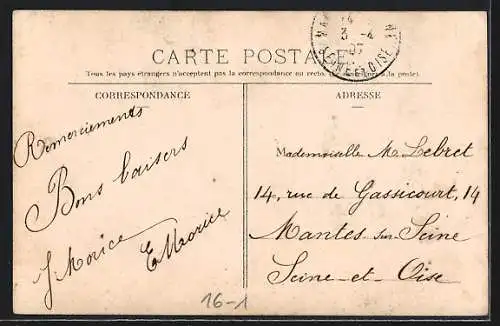 CARTE POSTALE
Tous les pays étrangers n'acceptent pas la correspondance au recto. à la poste).
CORRESPONDANCE
ADRESSE
Remerciements
Bons baisers
J Morice
E Morice
Mademoiselle M Lebret
14, rue de Gassicourt, 14
Mantes sur Seine
Seine-et-Oise
3 -4
07
SEINE ET OISE
16-1